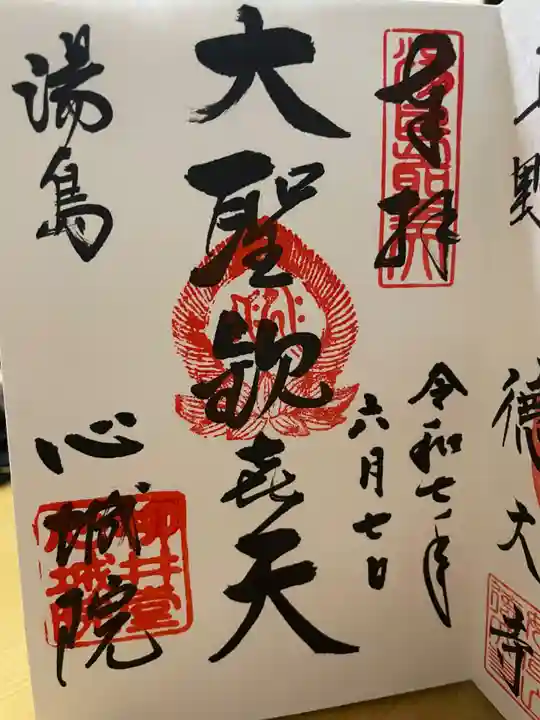 上野
徳大寺
奉拝
令和七年
六月七日
大聖歓喜天
湯島
心城院
柳井堂
心城院